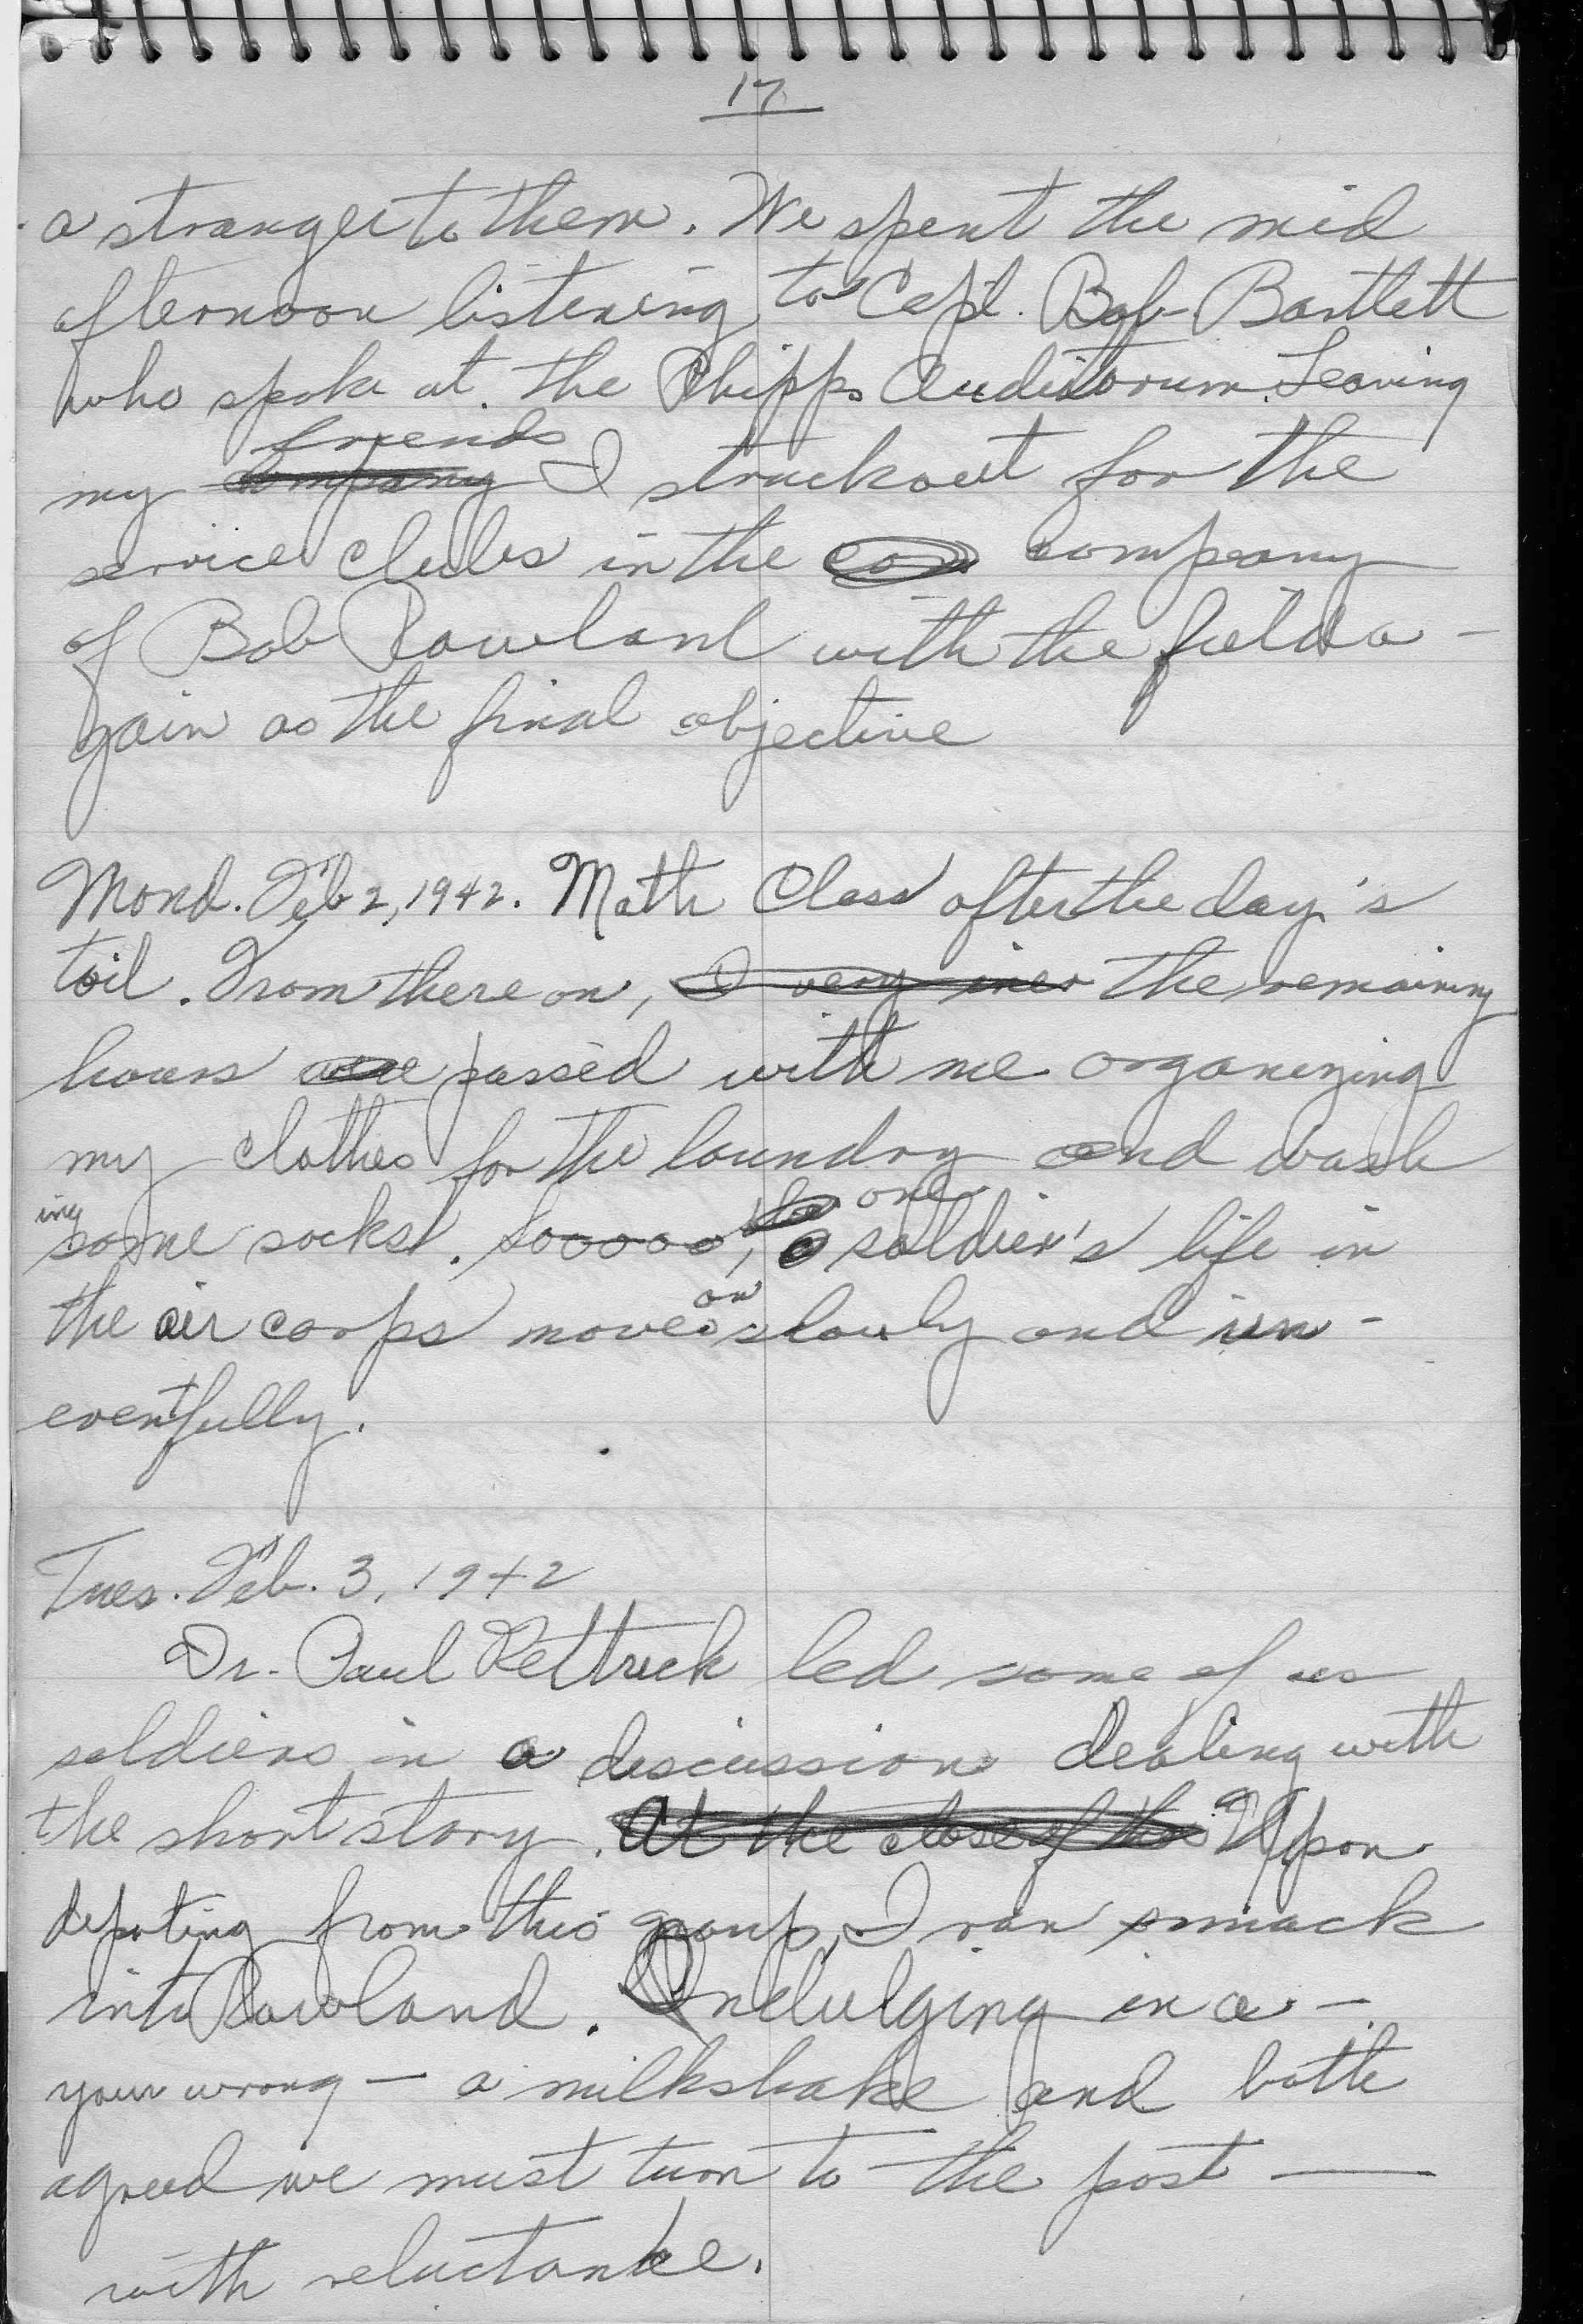 17
a stranger to them. We spent the mid
afternoon listening to Capt. Bob Bartlett
who spoke at the Phipps Auditorum. Leaving
friends
my company I struckout for the
service clubs in the com company
of Bob Rowland with the field a-
gain as the final objective
Mond. Feb 2, 1942. Math Class after the day's
toil. From there on, I very the remaining
hours were passed with me organizing
my clothes for the laundry and wash
ing some socks. Sooooo, the one soldier's life in
the air corps moves on slowly and un-
eventfully.
Tues. Feb. 3, 1942
Dr. Paul Kettrick led some of us
soldiers in a discussion dealing with
the short story. At the close of this Upon
departing from this group, I ran smack
into Rowland. Indulging in a -
your wrong — a milkshake and both
agreed we must turn to the post —
with reluctanke.